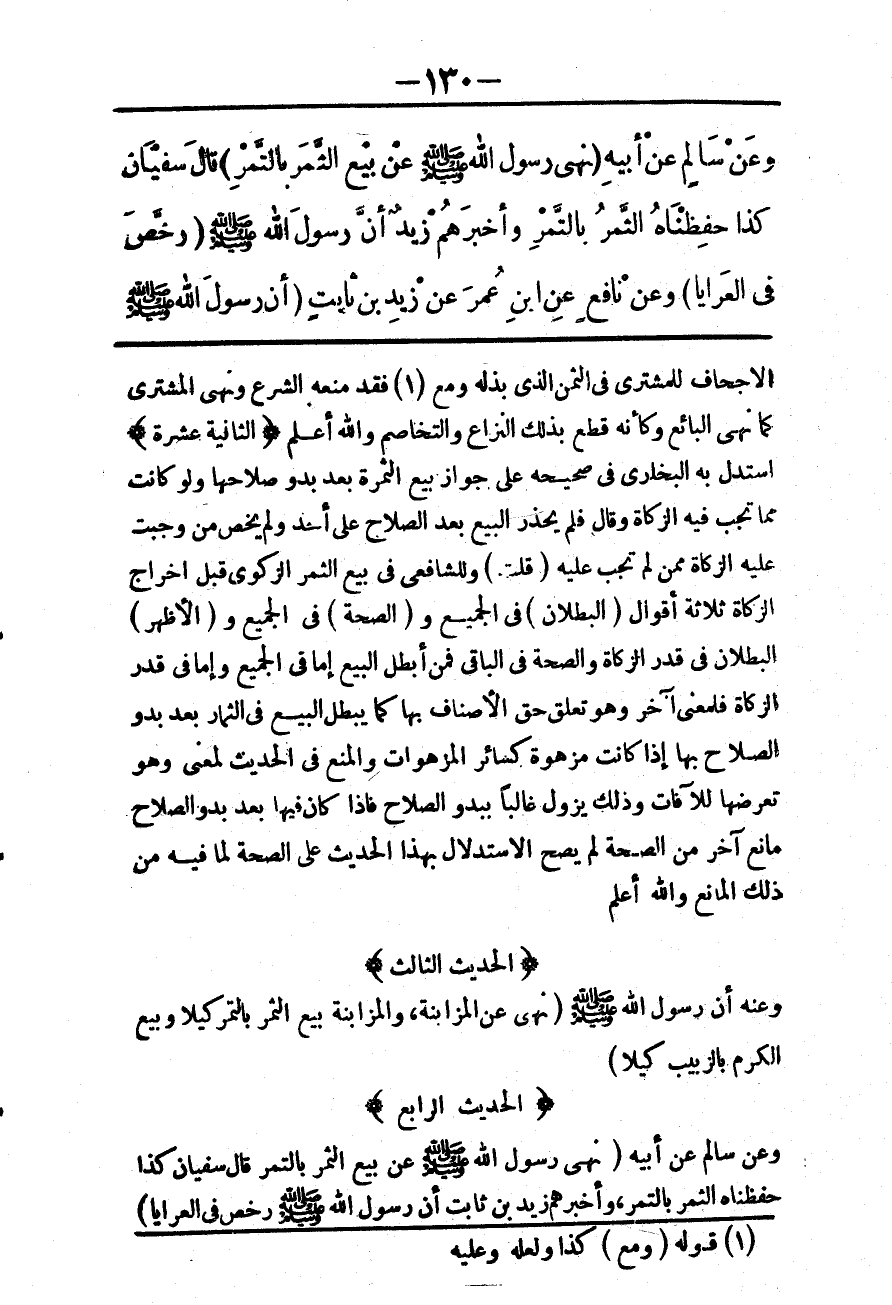 —١٣٠—
وعَنْ سَالِمٍ عنْ أبيهِ (نهى رسول الله ﷺ عنْ بَيْع الثَّمَرِ بالتَّمْرِ) قالَ سفيَان
كذا حفِظْنَاهُ الثَّمرُ بالتَّمْرِ وأخبرَهُمْ زيدٌ أنَّ رسولَ الله ﷺ (رخَّصَ
فى العرَايا) وعن نافعٍ عنِ ابنِ عُمرَ عن زيدِ بن ثابتٍ (أن رسولَ الله ﷺ
الاجحاف للمشترى فى الثمن الذى بذله ومع (١) فقد منعه الشرع ونهى المشترى
كما نهى البائع وكأنه قطع بذلك النزاع والتخاصم والله أعلم ﴿ الثانية عشرة ﴾
استدل به البخارى فى صحيحه على جواز بيع الثمرة بعد بدو صلاحها ولو كانت
مما تجب فيه الزكاة وقال فلم يحذر البيع بعد الصلاح على أحد ولم يخص من وجبت
عليه الزكاة ممن لم تجب عليه (قلت) وللشافعى فى بيع الثمر الزكوى قبل اخراج
الزكاة ثلاثة أقوال (البطلان) فى الجميع و (الصحة) فى الجميع و (الأظهر)
البطلان فى قدر الزكاة والصحة فى الباقى فمن أبطل البيع إما فى الجميع وإما فى قدر
الزكاة فلمعنى آخر وهو تعلق حق الأصناف بها كما يبطل البيع فى الثمار بعد بدو
الصلاح بها إذا كانت مزهوة كسائر المزهوات والمنع فى الحديث لمعنى وهو
تعرضها للآفات وذلك يزول غالباً ببدو الصلاح فاذا كان فيها بعد بدو الصلاح
مانع آخر من الصحة لم يصح الاستدلال بهذا الحديث على الصحة لما فيه من
ذلك المانع والله أعلم
﴿ الحديث الثالث ﴾
وعنه أن رسول الله ﷺ (نهى عن المزابنة، والمزابنة بيع الثمر بالتمر كيلا وبيع
الكرم بالزبيب كيلا)
﴿ الحديث الرابع ﴾
وعن سالم عن أبيه (نهى رسول الله ﷺ عن بيع الثمر بالتمر قال سفيان كذا
حفظناه الثمر بالتمر، وأخبرهم زيد بن ثابت أن رسول الله ﷺ رخص فى العرايا)
(١) قوله (ومع) كذا ولعله وعليه